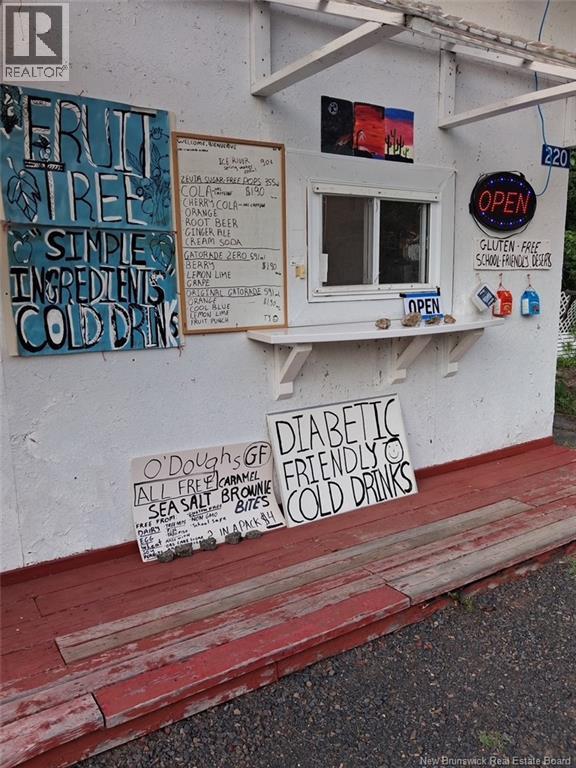 R
REALTOR®
FRUIT
TREE
SIMPLE
INGREDIENTS
COLD DRINKS
WELCOME, BIENVENUE
ICE RIVER 90¢
ZEVIA SUGAR-FREE POPS 355ml
COLA $1.90
CHERRY COLA
ORANGE
ROOT BEER
GINGER ALE
CREAM SODA
GATORADE ZERO 591ml
BERRY $1.90
LEMON LIME
GRAPE
ORIGINAL GATORADE 591ml
ORANGE
COOL BLUE
LEMON LIME
FRUIT PUNCH
220
OPEN
GLUTEN-FREE
SCHOOL-FRIENDLY, DESERTS
OPEN
O'DOUGHS GF
ALL FREE CARAMEL
SEA SALT BROWNIE
BITES
FREE FROM:
DAIRY NON GMO
EGG School Safe
Wheat
2 IN A PACK $4
DIABETIC
FRIENDLY
COLD DRINKS
New Brunswick Real Estate Board